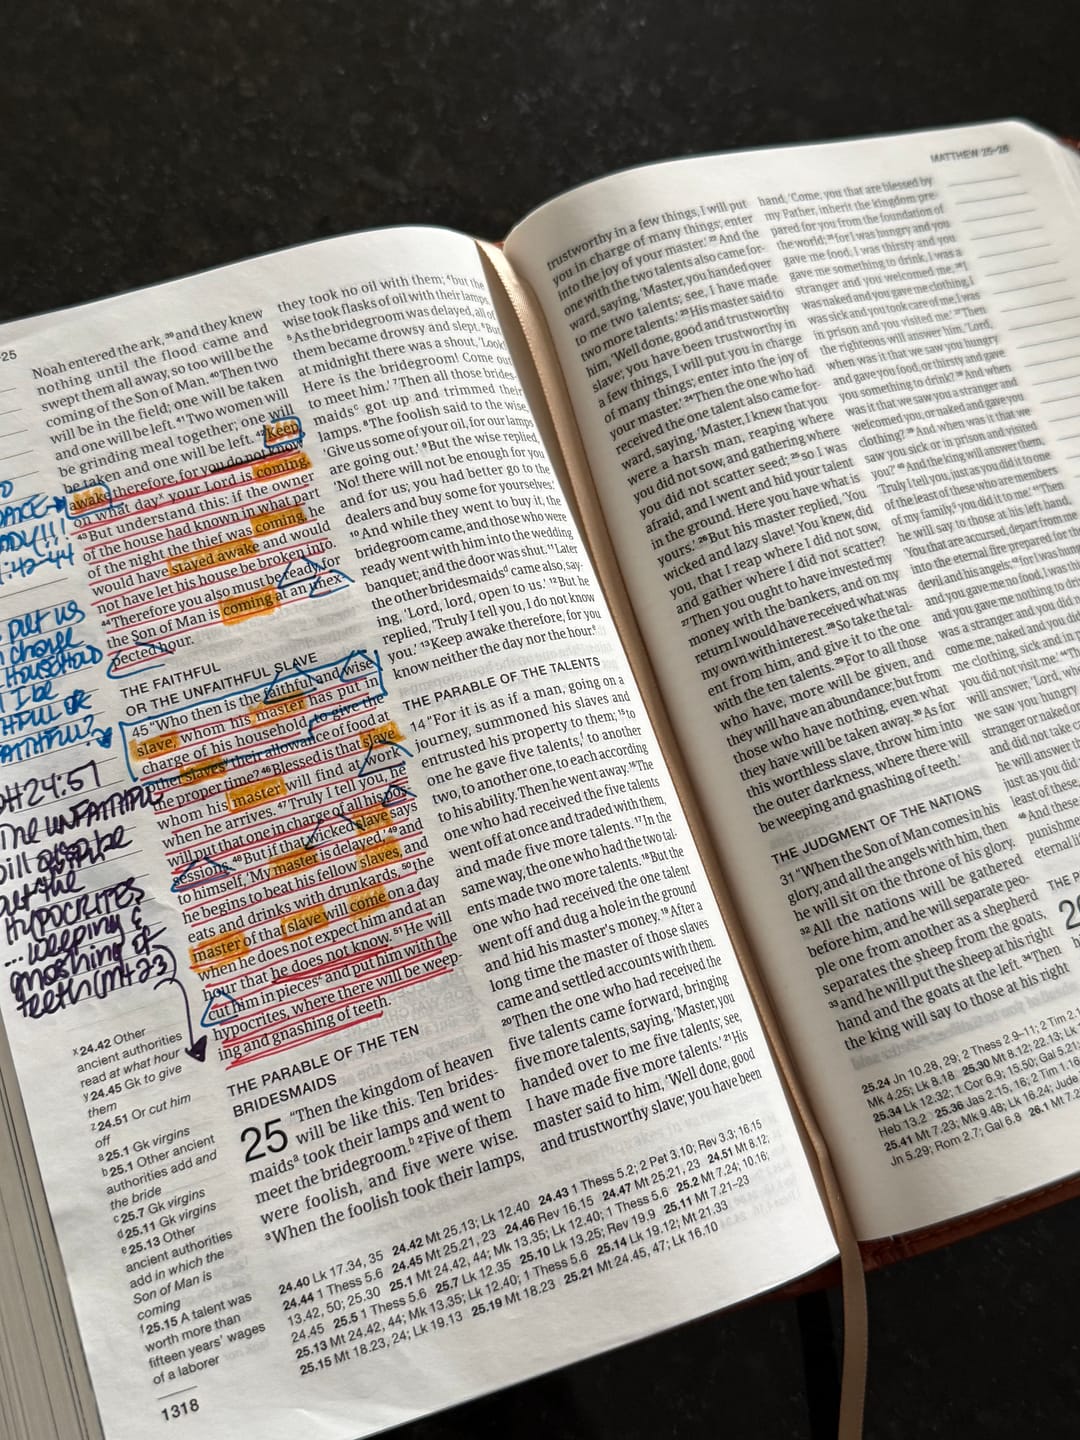 -25
Noah entered the ark, ³⁹and they knew
nothing until the flood came and
swept them all away, so too will be the
coming of the Son of Man. ⁴⁰Then two
will be in the field; one will be taken
and one will be left. ⁴¹Two women will
be grinding meal together; one will
be taken and one will be left. ⁴²Keep
awake therefore, for you do not know
on what dayˣ your Lord is coming.
⁴³But understand this: if the owner
of the house had known in what part
of the night the thief was coming, he
would have stayed awake and would
not have let his house be broken into.
⁴⁴Therefore you also must be ready, for
the Son of Man is coming at an unex-
pected hour.
THE FAITHFUL
OR THE UNFAITHFUL SLAVE
45 "Who then is the faithful and wise
slave, whom his master has put in
charge of his household, to give the
other slavesʸ their allowance of food at
the proper time? ⁴⁶Blessed is that slave
whom his master will find at work
when he arrives. ⁴⁷Truly I tell you, he
will put that one in charge of all his pos-
sessions. ⁴⁸But if that wicked slave says
to himself, 'My master is delayed,' ⁴⁹and
he begins to beat his fellow slaves, and
eats and drinks with drunkards, ⁵⁰the
master of that slave will come on a day
when he does not expect him and at an
hour that he does not know. ⁵¹He will
cut him in piecesᶻ and put him with the
hypocrites, where there will be weep-
ing and gnashing of teeth.
THE PARABLE OF THE TEN
BRIDESMAIDS
25 "Then the kingdom of heaven
will be like this. Ten brides-
maidsᵃ took their lamps and went to
meet the bridegroom.ᵇ ²Five of them
were foolish, and five were wise.
³When the foolish took their lamps,
they took no oil with them; ⁴but the
wise took flasks of oil with their lamps.
⁵As the bridegroom was delayed, all of
them became drowsy and slept. ⁶But
at midnight there was a shout, 'Look!
Here is the bridegroom! Come out
to meet him.' ⁷Then all those brides-
maidsᶜ got up and trimmed their
lamps. ⁸The foolish said to the wise,
'Give us some of your oil, for our lamps
are going out.' ⁹But the wise replied,
'No! there will not be enough for you
and for us; you had better go to the
dealers and buy some for yourselves.'
¹⁰And while they went to buy it, the
bridegroom came, and those who were
ready went with him into the wedding
banquet; and the door was shut. ¹¹Later
the other bridesmaidsᵈ came also, say-
ing, 'Lord, lord, open to us.' ¹²But he
replied, 'Truly I tell you, I do not know
you.' ¹³Keep awake therefore, for you
know neither the day nor the hour.ᵉ
THE PARABLE OF THE TALENTS
14 "For it is as if a man, going on a
journey, summoned his slaves and
entrusted his property to them; ¹⁵to
one he gave five talents,ᶠ to another
two, to another one, to each according
to his ability. Then he went away. ¹⁶The
one who had received the five talents
went off at once and traded with them,
and made five more talents. ¹⁷In the
same way, the one who had the two tal-
ents made two more talents. ¹⁸But the
one who had received the one talent
went off and dug a hole in the ground
and hid his master's money. ¹⁹After a
long time the master of those slaves
came and settled accounts with them.
²⁰Then the one who had received the
five talents came forward, bringing
five more talents, saying, 'Master, you
handed over to me five talents; see,
I have made five more talents.' ²¹His
master said to him, 'Well done, good
and trustworthy slave; you have been
:42-44
put us
charge
household
I be
OR
MH 24:51
The UNFAITHFUL
will
put the
HYPOCRITES
... weeping &
gnashing of
teeth (Mt 23
ˣ24.42 Other
ancient authorities
read at what hour
ʸ24.45 Gk to give
them
ᶻ24.51 Or cut him
off
ᵃ25.1 Gk virgins
ᵇ25.1 Other ancient
authorities add and
the bride
ᶜ25.7 Gk virgins
ᵈ25.11 Gk virgins
ᵉ25.13 Other
ancient authorities
add in which the
Son of Man is
coming
ᶠ25.15 A talent was
worth more than
fifteen years' wages
of a laborer
24.40 Lk 17.34, 35 24.42 Mt 25.13; Lk 12.40 24.43 1 Thess 5.2; 2 Pet 3.10; Rev 3.3; 16.15
24.44 1 Thess 5.6 24.45 Mt 25.21, 23 24.46 Rev 16.15 24.47 Mt 25.21, 23 24.51 Mt 8.12;
13.42, 50; 25.30 25.1 Mt 24.42, 44; Mk 13.35; Lk 12.40; 1 Thess 5.6 25.2 Mt 7.24; 10.16;
24.45 25.5 1 Thess 5.6 25.7 Lk 12.35 25.10 Lk 13.25; Rev 19.9 25.11 Mt 7.21-23
25.13 Mt 24.42, 44; Mk 13.35; Lk 12.40; 1 Thess 5.6 25.14 Lk 19.12; Mt 21.33
25.15 Mt 18.23, 24; Lk 19.13 25.19 Mt 18.23 25.21 Mt 24.45, 47; Lk 16.10
1318
MATTHEW 25-26
trustworthy in a few things, I will put
you in charge of many things; enter
into the joy of your master.' ²²And the
one with the two talents also came for-
ward, saying, 'Master, you handed over
to me two talents; see, I have made
two more talents.' ²³His master said to
him, 'Well done, good and trustworthy
slave; you have been trustworthy in
a few things, I will put you in charge
of many things; enter into the joy of
your master.' ²⁴Then the one who had
received the one talent also came for-
ward, saying, 'Master, I knew that you
were a harsh man, reaping where
you did not sow, and gathering where
you did not scatter seed; ²⁵so I was
afraid, and I went and hid your talent
in the ground. Here you have what is
yours.' ²⁶But his master replied, 'You
wicked and lazy slave! You knew, did
you, that I reap where I did not sow,
and gather where I did not scatter?
²⁷Then you ought to have invested my
money with the bankers, and on my
return I would have received what was
my own with interest. ²⁸So take the tal-
ent from him, and give it to the one
with the ten talents. ²⁹For to all those
who have, more will be given, and
they will have an abundance; but from
those who have nothing, even what
they have will be taken away. ³⁰As for
this worthless slave, throw him into
the outer darkness, where there will
be weeping and gnashing of teeth.'
THE JUDGMENT OF THE NATIONS
31 "When the Son of Man comes in his
glory, and all the angels with him, then
he will sit on the throne of his glory.
³²All the nations will be gathered
before him, and he will separate peo-
ple one from another as a shepherd
separates the sheep from the goats,
³³and he will put the sheep at his right
hand and the goats at the left. ³⁴Then
the king will say to those at his right
hand, 'Come, you that are blessed by
my Father, inherit the kingdom pre-
pared for you from the foundation of
the world; ³⁵for I was hungry and you
gave me food, I was thirsty and you
gave me something to drink, I was a
stranger and you welcomed me, ³⁶I
was naked and you gave me clothing, I
was sick and you took care of me, I was
in prison and you visited me.' ³⁷Then
the righteous will answer him, 'Lord,
when was it that we saw you hungry
and gave you food, or thirsty and gave
you something to drink? ³⁸And when
was it that we saw you a stranger and
welcomed you, or naked and gave you
clothing? ³⁹And when was it that we
saw you sick or in prison and visited
you?' ⁴⁰And the king will answer them,
'Truly I tell you, just as you did it to one
of the least of these who are members
of my family,ᵍ you did it to me.' ⁴¹Then
he will say to those at his left hand,
'You that are accursed, depart from me
into the eternal fire prepared for the
devil and his angels; ⁴²for I was hungry
and you gave me no food, I was thi
and you gave me nothing to dri
was a stranger and you did n
come me, naked and you did n
me clothing, sick and in pris
you did not visit me.' ⁴⁴Th
will answer, 'Lord, wh
we saw you hungry
stranger or naked or
and did not take c
he will answer th
just as you did
least of these,
⁴⁶And these
punishme
eternal lif
THE P
25.24 Jn 10.28, 29; 2 Thess 2.9-11; 2 Tim 2.1
Mk 4.25; Lk 8.18 25.30 Mt 8.12; 22.13; Lk
25.34 Lk 12.32; 1 Cor 6.9; 15.50; Gal 5.21;
Heb 13.2 25.36 Jas 2.15, 16; 2 Tim 1.16
25.41 Mt 7.23; Mk 9.48; Lk 16.24; Jude
Jn 5.29; Rom 2.7; Gal 6.8 26.1 Mt 7.2